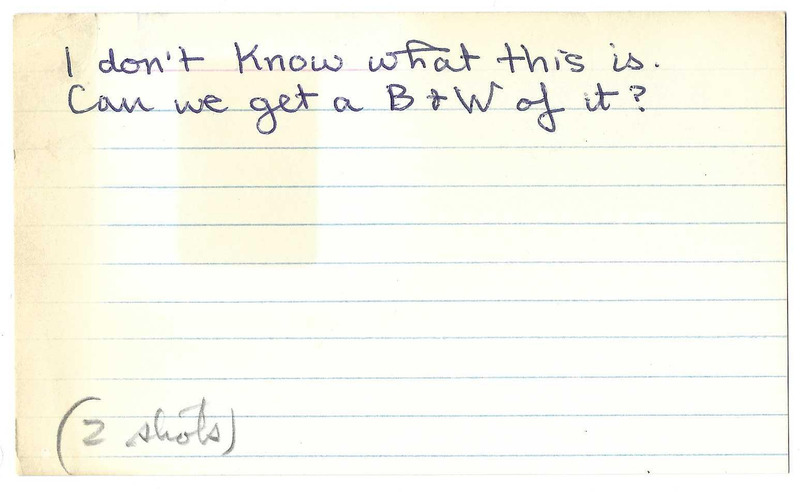 I don't know what this is.
Can we get a B & W of it?
(2 shots)